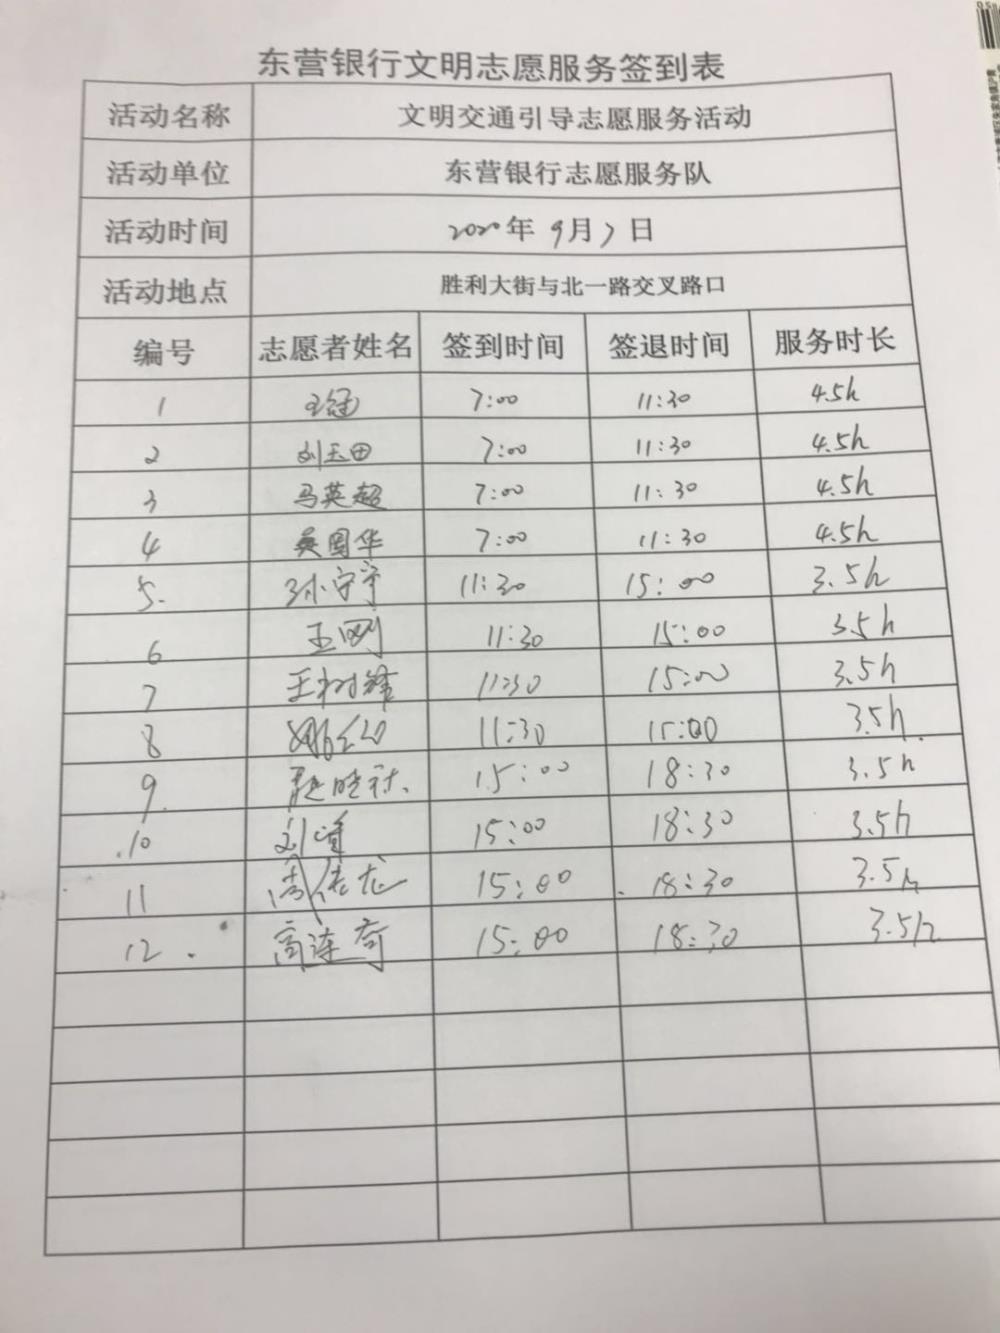 东营银行文明志愿服务签到表
活动名称 文明交通引导志愿服务活动
活动单位 东营银行志愿服务队
活动时间 2020年 9月7日
活动地点 胜利大街与北一路交叉路口
编号 志愿者姓名 签到时间 签退时间 服务时长
1 王冠 7:00 11:30 4.5h
2 刘玉田 7:00 11:30 4.5h
3 马英超 7:00 11:30 4.5h
4 吴国华 7:00 11:30 4.5h
5. 孙守宇 11:30 15:00 3.5h
6 王刚 11:30 15:00 3.5h
7 王树锋 11:30 15:00 3.5h
8 11:30 15:00 3.5h
9. 15:00 18:30 3.5h
10 刘 15:00 18:30 3.5h
11 周传龙 15:00 18:30 3.5h
12 高连奇 15:00 18:30 3.5h